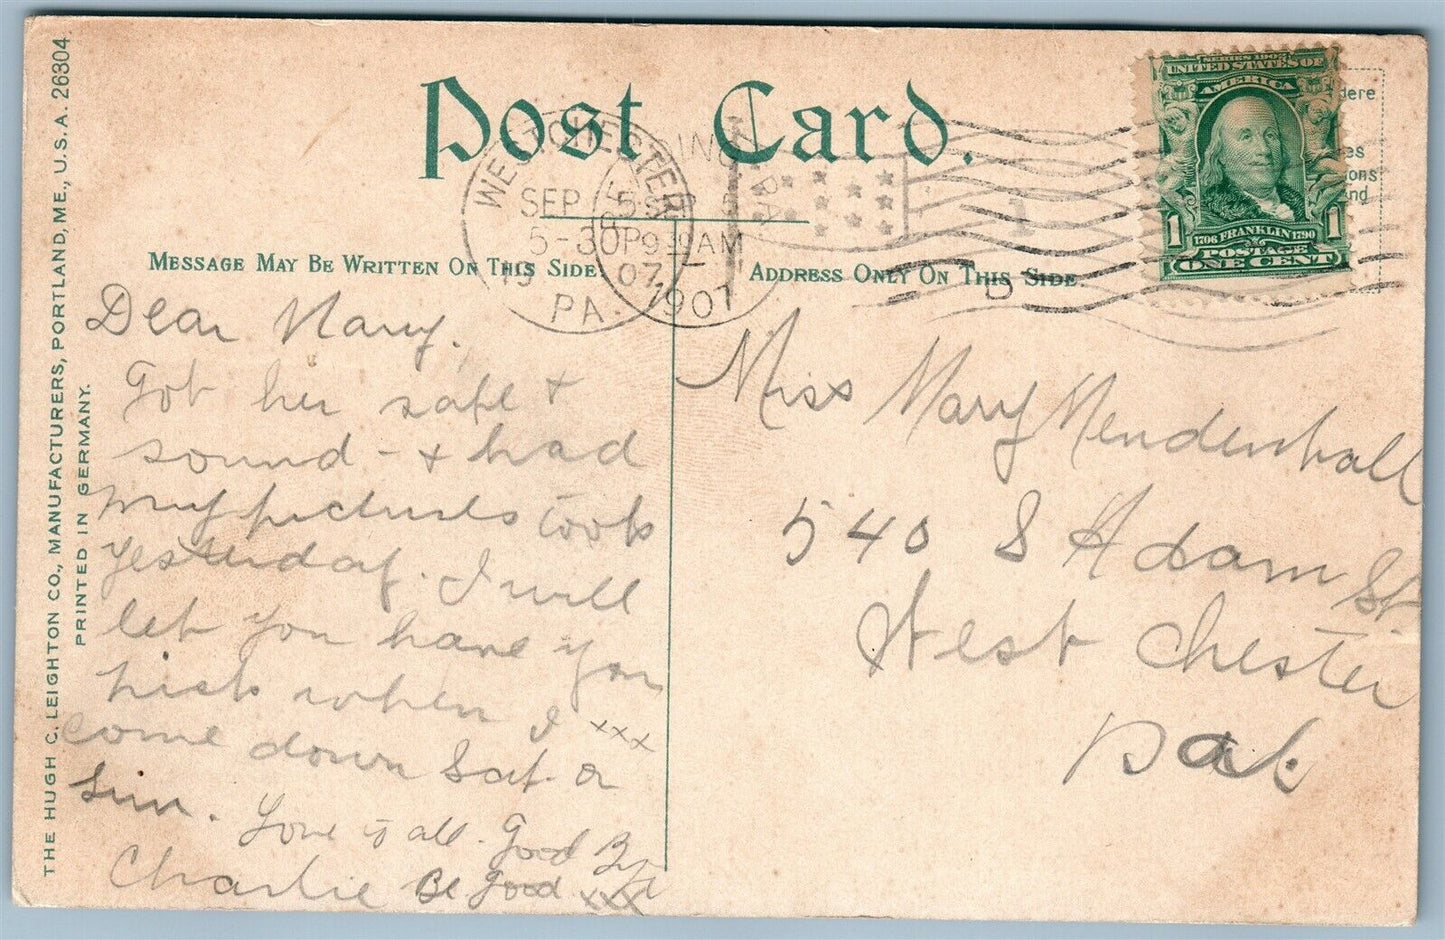 Post Card.
THE HUGH C. LEIGHTON CO., MANUFACTURERS, PORTLAND, ME., U.S.A. 26304.
PRINTED IN GERMANY.
MESSAGE MAY BE WRITTEN ON THIS SIDE.
ADDRESS ONLY ON THIS SIDE.
SERIES 1902
UNITED STATES OF
AMERICA
1 1
1706 FRANKLIN 1790
POSTAGE
ONE CENT
WEST CHESTER
SEP 5
5-30P
19 07
PA.
9 AM
1907
PA
Dear Mary.
Got her safe +
sound - + had
my pictures took
yesterday. I will
let you have you
pick when I xxx
come down Sat. or
Sun. Love to all. Good By
Charlie Be good xxx
Miss Mary Mendenhall
540 S Adam St.
West Chester
Pa.